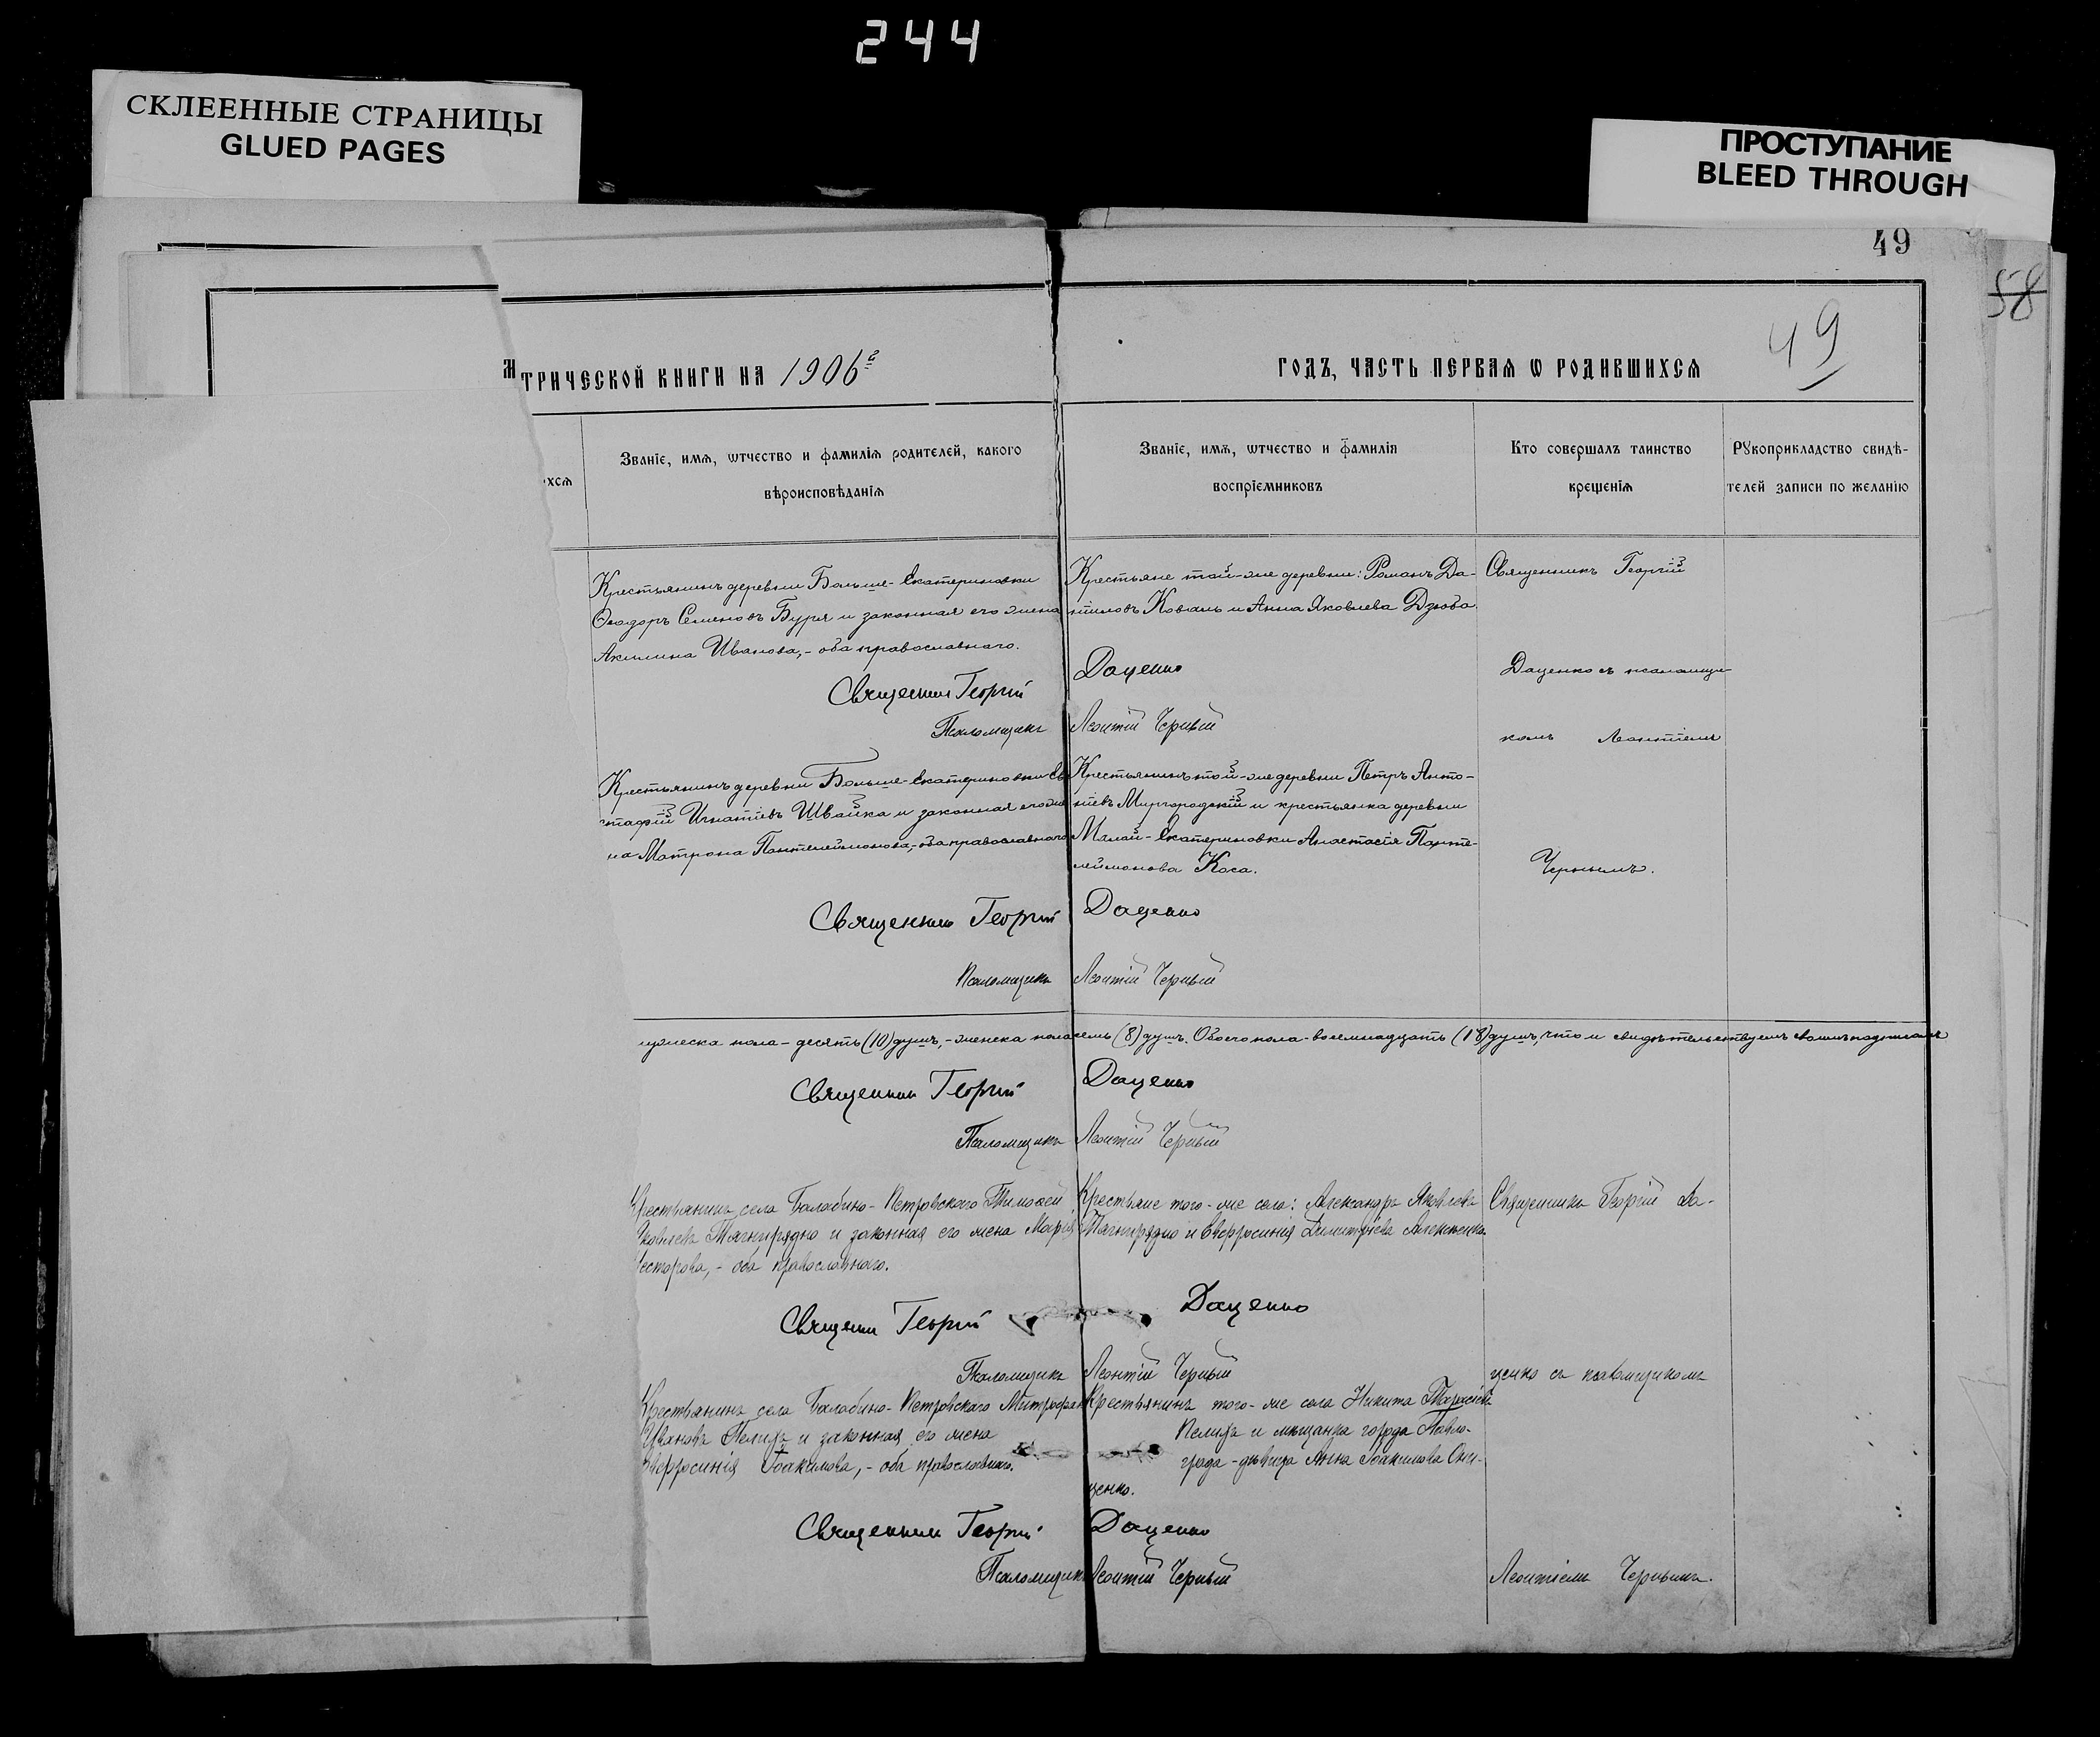 244
СКЛЕЕННЫЕ СТРАНИЦЫ
GLUED PAGES
ПРОСТУПАНИЕ
BLEED THROUGH
49
58
49
МТРИЧЕСКОЙ КНИГИ НА 1906 г
ГОДЪ, ЧАСТЬ ПЕРВАЯ Ѡ РОДИВШИХСЯ
хся
Званіе, имя, ѡтчество и фамилія родителей, какого
вѣроисповѣданія
Званіе, имя, ѡтчество и фамилія
воспріемниковъ
Кто совершалъ таинство
крещенія
Рукоприкладство свидѣ-
телей записи по желанію
Крестьянинъ деревни Больше-Екатериновки
Ѳеодоръ Семеновъ Буря и законная его жена
Акилина Иванова,- оба православнаго.
Крестьяне той-же деревни: Романъ Да-
ниловъ Коваль и Анна Яковлева Дзюба.
Священникъ Георгій
Священникъ Георгій Даценко
Даценко съ псаломщи-
Псаломщикъ Леонтій Черный
комъ Леонтіемъ
Крестьянинъ деревни Больше-Екатериновки Ев
стафій Игнатіевъ Швайка и законная его же
на Матрона Пантелеимонова,- оба православнаго
Крестьянинъ той-же деревни Петръ Анто-
ніевъ Миргородскій и крестьянка деревни
Малой-Екатериновки Анастасія Панте-
леимонова Коса.
Чернымъ.
Священникъ Георгій Даценко
Псаломщикъ Леонтій Черный
мужеска пола - десять (10) душъ, - женска пола восемь (8) душъ. Обоего пола - восемнадцать (18) душъ, что и свидѣтельствуемъ своимъ подписомъ
Священникъ Георгій Даценко
Псаломщикъ Леонтій Черный
Крестьянинъ села Балабино-Петровскаго Тимоѳей
Яковлевъ Тягнирядно и законная его жена Марія
Несторова,- оба православнаго.
Крестьяне того-же села: Александръ Яковлевъ
Тягнирядно и Евфросинія Димитріева Алексеенко.
Священникъ Георгій Да-
Священникъ Георгій Даценко
Псаломщикъ Леонтій Черный
ценко съ псаломщикомъ
Крестьянинъ села Балабино-Петровскаго Митрофанъ
Ивановъ Пелихъ и законная его жена
Евфросинія Іоакимова,- оба православнаго.
Крестьянинъ того-же села Никита
Пелихъ и мѣщанка города Павло-
града - дѣвица Анна Іоакимова Они-
щенко.
Священникъ Георгій Даценко
Псаломщикъ Леонтій Черный
Леонтіемъ Чернымъ.